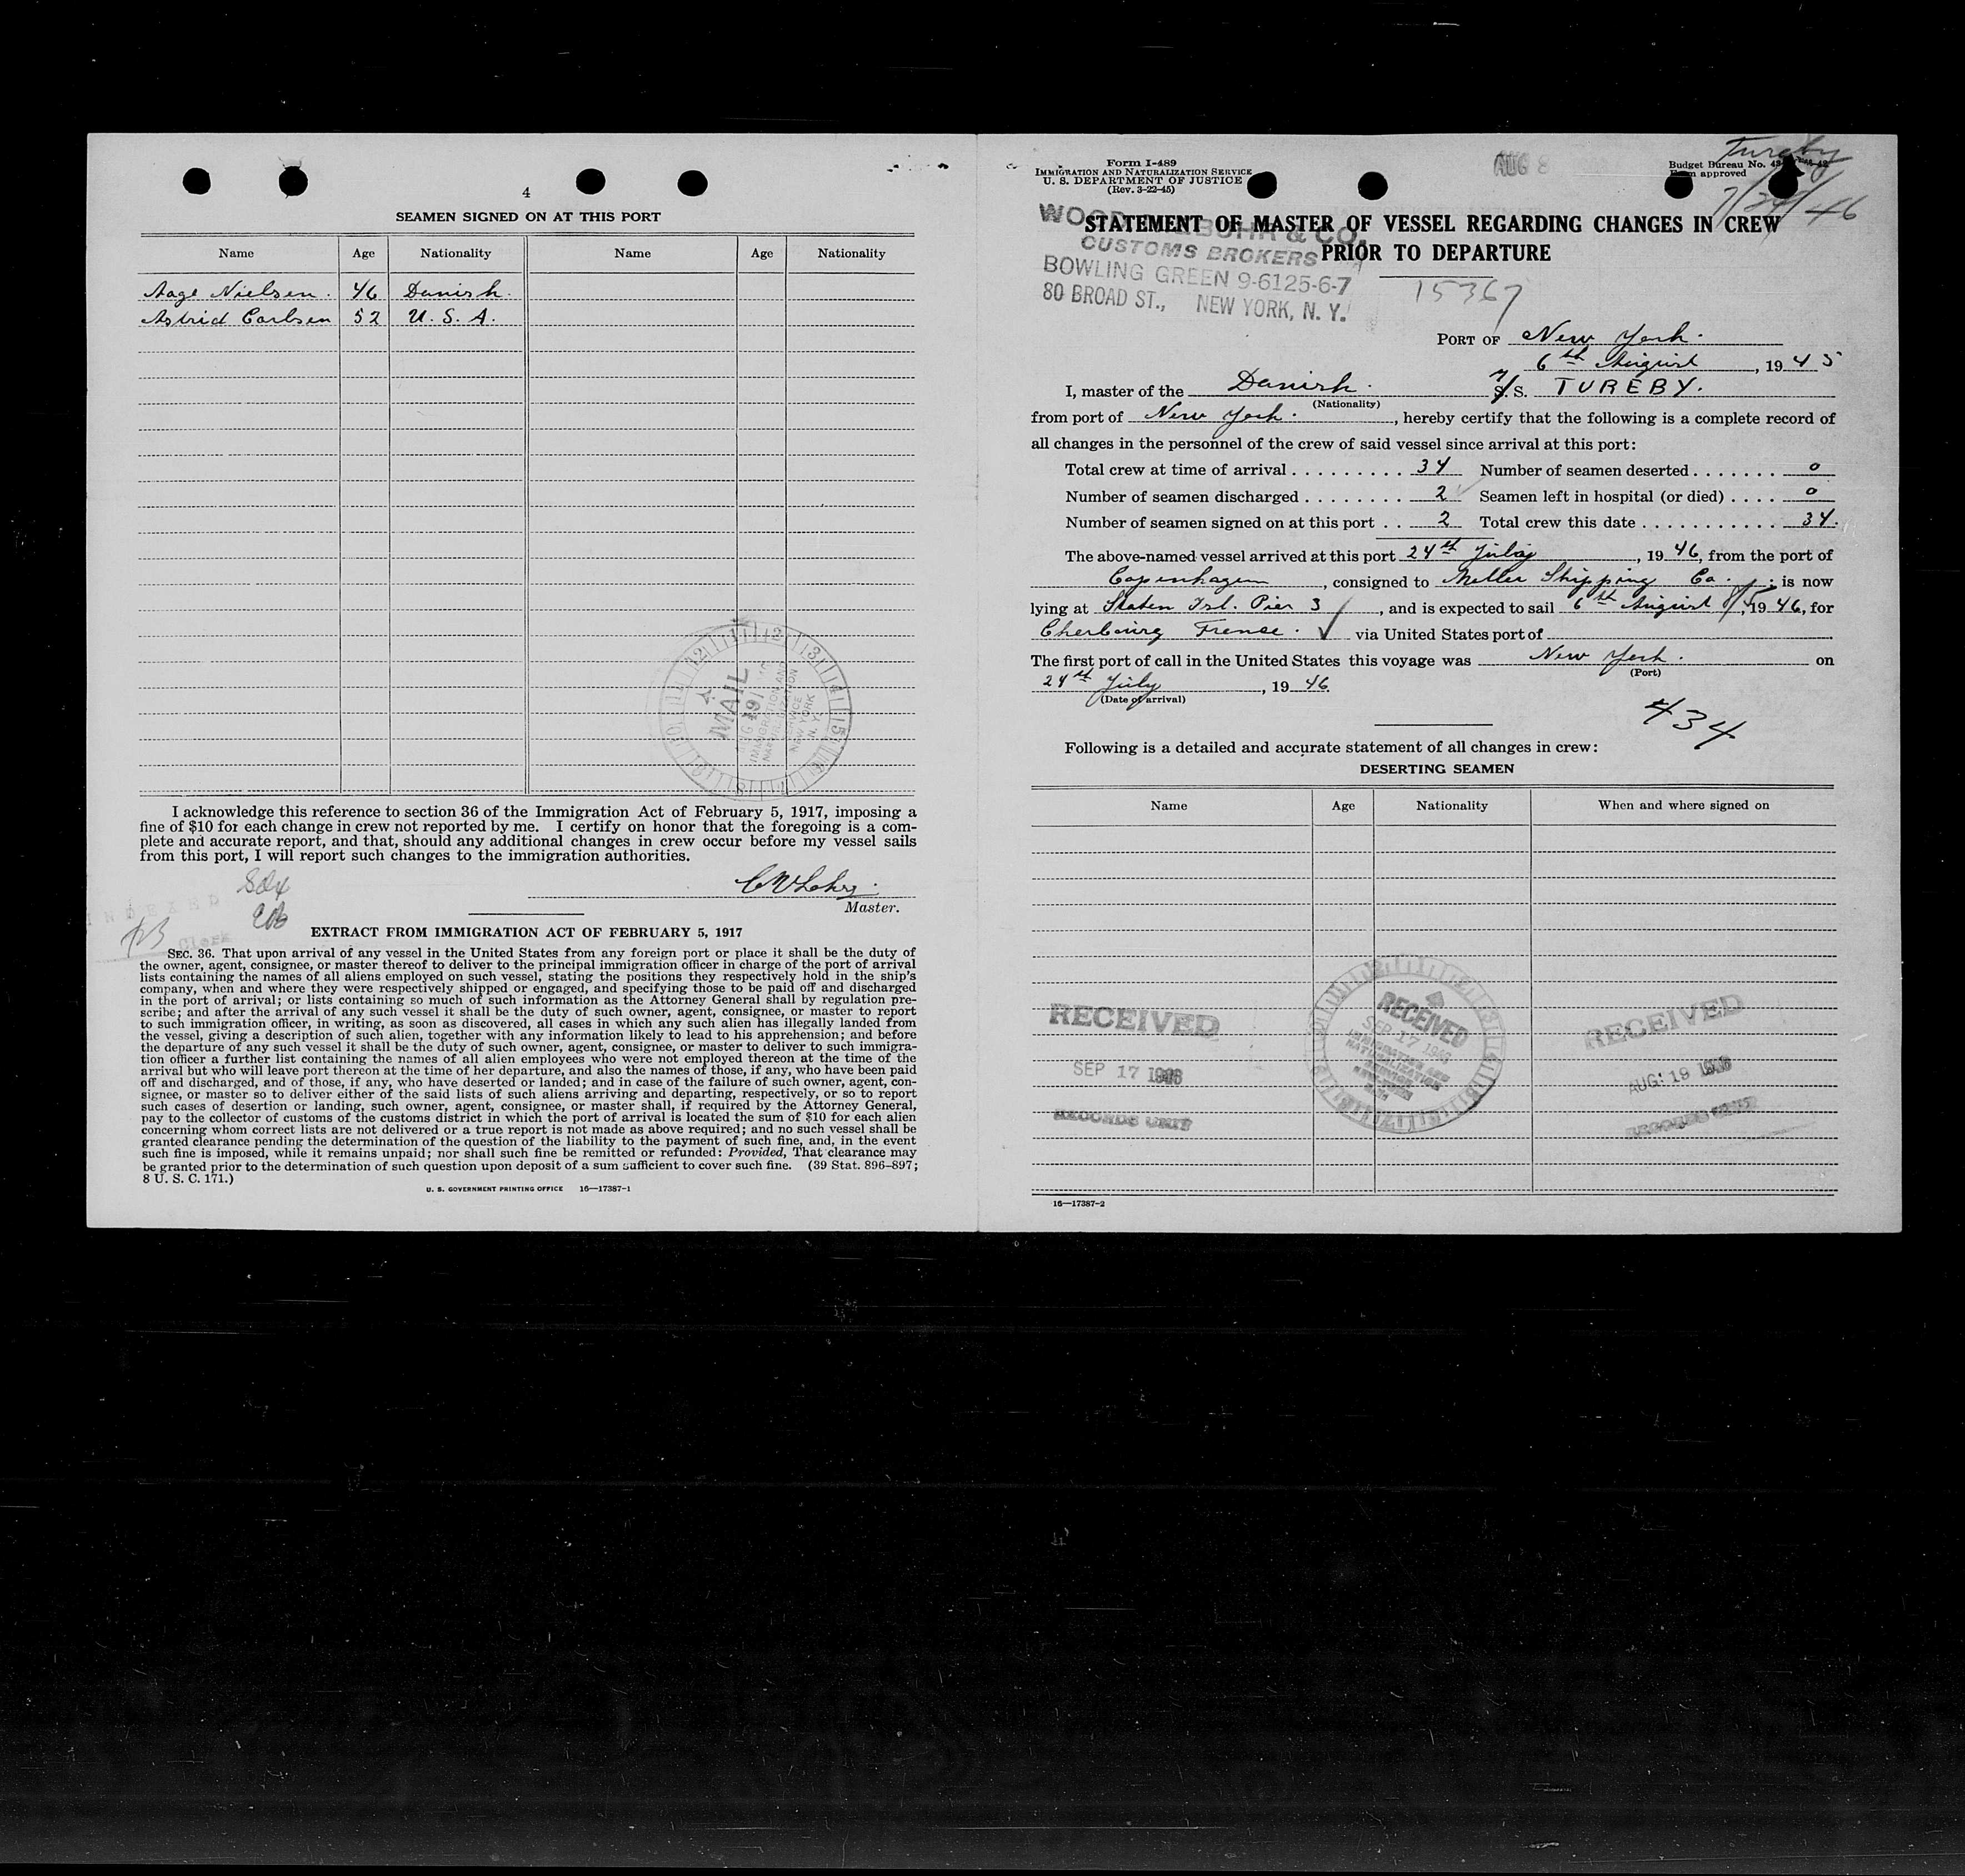 4
SEAMEN SIGNED ON AT THIS PORT
Name Age Nationality Name Age Nationality
Aage Nielsen. 46 Danish.
Astrid Carlsen 52 U. S. A.
MAIL
IMMIGRATION AND
NATURALIZATION
SERVICE
NEW YORK
N. Y.
I acknowledge this reference to section 36 of the Immigration Act of February 5, 1917, imposing a
fine of $10 for each change in crew not reported by me. I certify on honor that the foregoing is a com-
plete and accurate report, and that, should any additional changes in crew occur before my vessel sails
from this port, I will report such changes to the immigration authorities.
Master.
INDEXED
Clerk
EXTRACT FROM IMMIGRATION ACT OF FEBRUARY 5, 1917
SEC. 36. That upon arrival of any vessel in the United States from any foreign port or place it shall be the duty of
the owner, agent, consignee, or master thereof to deliver to the principal immigration officer in charge of the port of arrival
lists containing the names of all aliens employed on such vessel, stating the positions they respectively hold in the ship's
company, when and where they were respectively shipped or engaged, and specifying those to be paid off and discharged
in the port of arrival; or lists containing so much of such information as the Attorney General shall by regulation pre-
scribe; and after the arrival of any such vessel it shall be the duty of such owner, agent, consignee, or master to report
to such immigration officer, in writing, as soon as discovered, all cases in which any such alien has illegally landed from
the vessel, giving a description of such alien, together with any information likely to lead to his apprehension; and before
the departure of any such vessel it shall be the duty of such owner, agent, consignee, or master to deliver to such immigra-
tion officer a further list containing the names of all alien employees who were not employed thereon at the time of the
arrival but who will leave port thereon at the time of her departure, and also the names of those, if any, who have been paid
off and discharged, and of those, if any, who have deserted or landed; and in case of the failure of such owner, agent, con-
signee, or master so to deliver either of the said lists of such aliens arriving and departing, respectively, or so to report
such cases of desertion or landing, such owner, agent, consignee, or master shall, if required by the Attorney General,
pay to the collector of customs of the customs district in which the port of arrival is located the sum of $10 for each alien
concerning whom correct lists are not delivered or a true report is not made as above required; and no such vessel shall be
granted clearance pending the determination of the question of the liability to the payment of such fine, and, in the event
such fine is imposed, while it remains unpaid; nor shall such fine be remitted or refunded: Provided, That clearance may
be granted prior to the determination of such question upon deposit of a sum sufficient to cover such fine. (39 Stat. 896–897;
8 U. S. C. 171.)
U. S. GOVERNMENT PRINTING OFFICE 16—17387-1
Form I-489
IMMIGRATION AND NATURALIZATION SERVICE
U. S. DEPARTMENT OF JUSTICE
(Rev. 3-22-45)
AUG 8
Tureby
7/24/46
Budget Bureau No.
Form approved
STATEMENT OF MASTER OF VESSEL REGARDING CHANGES IN CREW
PRIOR TO DEPARTURE
& CO.
CUSTOMS BROKERS
BOWLING GREEN 9-6125-6-7
80 BROAD ST., NEW YORK, N. Y.
15367
PORT OF New York.
6th August, 1945
I, master of the Danish. M/S. TUREBY.
(Nationality)
from port of New York., hereby certify that the following is a complete record of
all changes in the personnel of the crew of said vessel since arrival at this port:
Total crew at time of arrival . . . . . . . . . 34 Number of seamen deserted . . . . . . . 0
Number of seamen discharged . . . . . . . . 2 Seamen left in hospital (or died) . . . . 0
Number of seamen signed on at this port . . 2 Total crew this date . . . . . . . . . . . 34.
The above-named vessel arrived at this port 24th July, 1946, from the port of
Copenhagen, consigned to Shipping Co. ; is now
lying at Staten Isl. Pier 3, and is expected to sail 6th August, 1946, for
Cherbourg Frense. via United States port of
The first port of call in the United States this voyage was New York. on
(Port)
24th July, 1946
(Date of arrival)
434
Following is a detailed and accurate statement of all changes in crew:
DESERTING SEAMEN
Name Age Nationality When and where signed on
RECEIVED
SEP 17 1946
RECORDS UNIT
RECEIVED
SEP 17 1946
IMMIGRATION AND
NATURALIZATION
SERVICE
RECEIVED
AUG 19 1946
RECORDS UNIT
16—17387-2